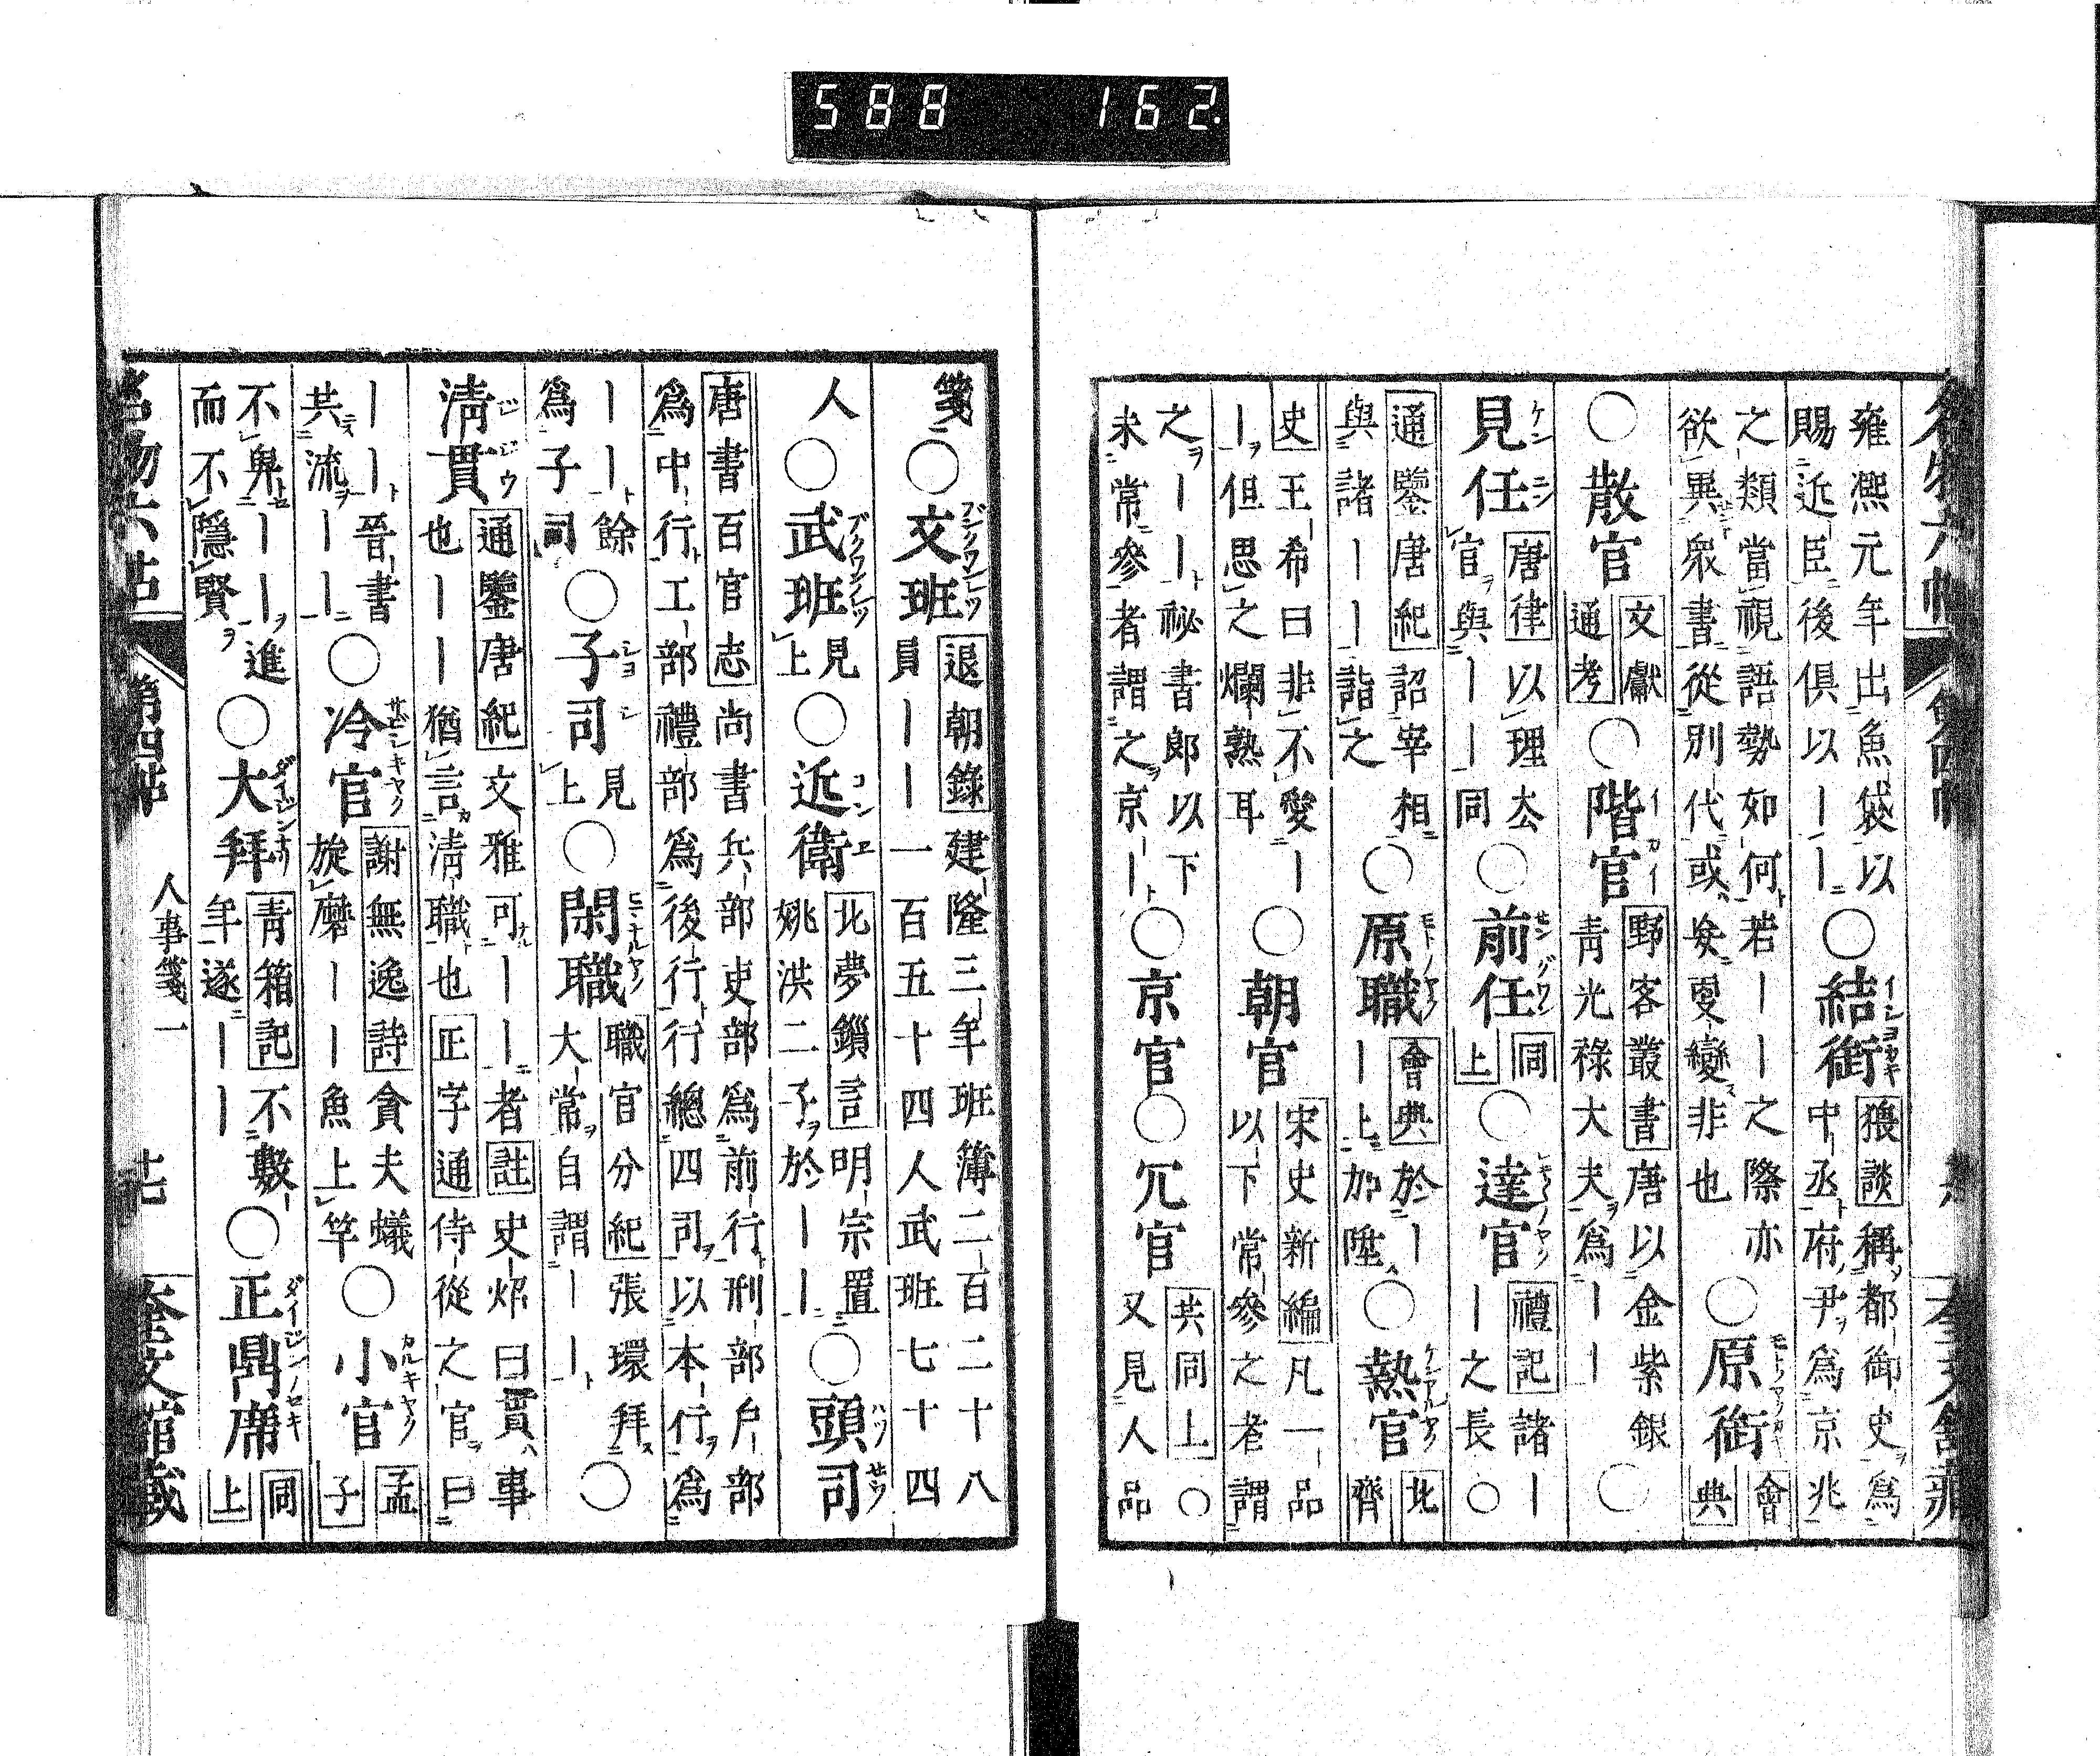 588 162.
雍熈元年出魚袋以
賜近臣後俱以｜｜
○結銜
猥談稱都御史爲
中丞府尹爲京兆
之類當視語勢如何若｜｜之際亦
欲異衆書從別代或矣更變非也
○原銜
會典
○散官
文獻
通考
○階官
野客叢書唐以金紫銀
青光祿大夫爲｜｜
○
見任
唐律以理厺
官與｜｜同
○前任
同
上
○達官
禮記諸｜
｜之長○
通鑒唐紀詔宰相
與諸｜｜詣之
○原職
會典於｜
｜上加陞
○熱官
北
齊
史王希曰非不愛｜
｜但思之爛熟耳
○朝官
宋史新編凡一品
以下常參之老謂
之｜｜祕書郎以下
未常參者謂之京｜
○京官○冗官
共同上○
又見人品
箋○文班
退朝錄建隆三年班簿二百二十八
員｜｜一百五十四人武班七十四
人○武班
見
上
○近衛
北夢鎖言明宗置
姚洪二子於｜｜
○頭司
唐書百官志尚書兵部吏部爲前行刑部戶部
爲中行工部禮部爲後行行總四司以本行爲
｜｜餘
爲子司
○子司
見
上
○閑職
職官分紀張環拜
大常自謂｜｜
○
淸貫
通鑒唐紀文雅可｜｜者註史炤曰貫事
也｜｜猶言淸職也正字通侍從之官曰
｜｜晉書
共流｜｜
○冷官
謝無逸詩貪夫蟻
旋磨｜｜魚上竿
○小官
孟
子
不與｜｜進
而不隱賢
○大拜
靑箱記不數
年遂｜｜
○正鼎席
同
上
名物六帖 第四帖 人事箋一 十七 奎文館藏